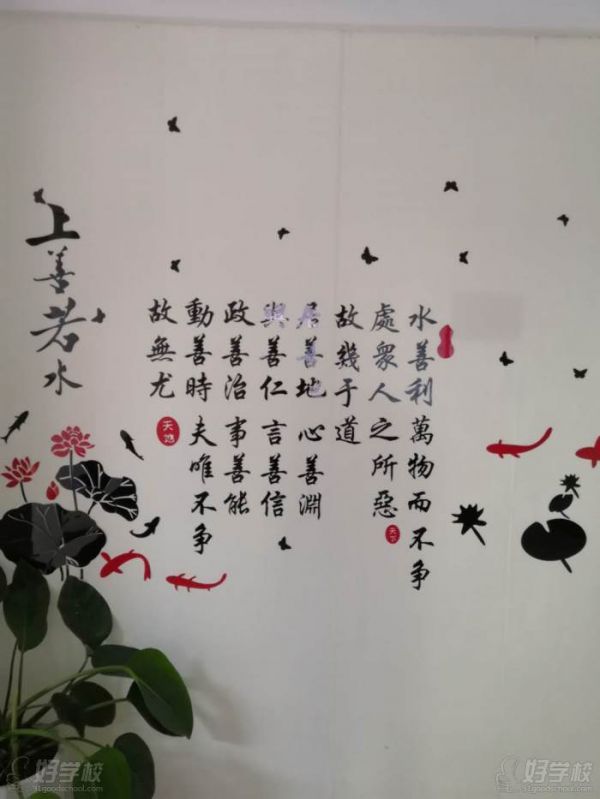 水善利萬物而不争
處衆人之所惡
故幾于道
居善地心善淵
與善仁言善信
政善治事善能
動善時夫唯不争
故無尤
上善若水
好学校
91goodschool.com